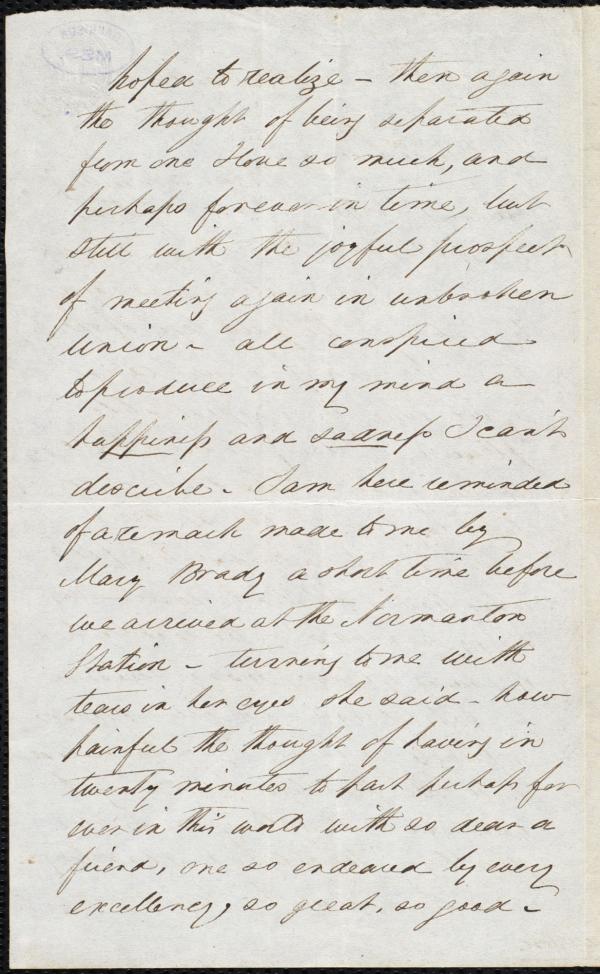 hoped to realize - then again
the thought of being separated
from one I love so much, and
perhaps forever in time, but
still with the joyful prospect
of meeting again in unbroken
union - all conspired
to produce in my mind a
happiness and sadness I can't
describe - I am here reminded
of a remark made to me by
Mary Brady a short time before
we arrived at the Normanton
Station - turning to me with
tears in her eyes she said - how
painful the thought of having in
twenty minutes to part perhaps for
ever in this world with so dear a
friend, one so endeared by every
excellency, so great, so good -